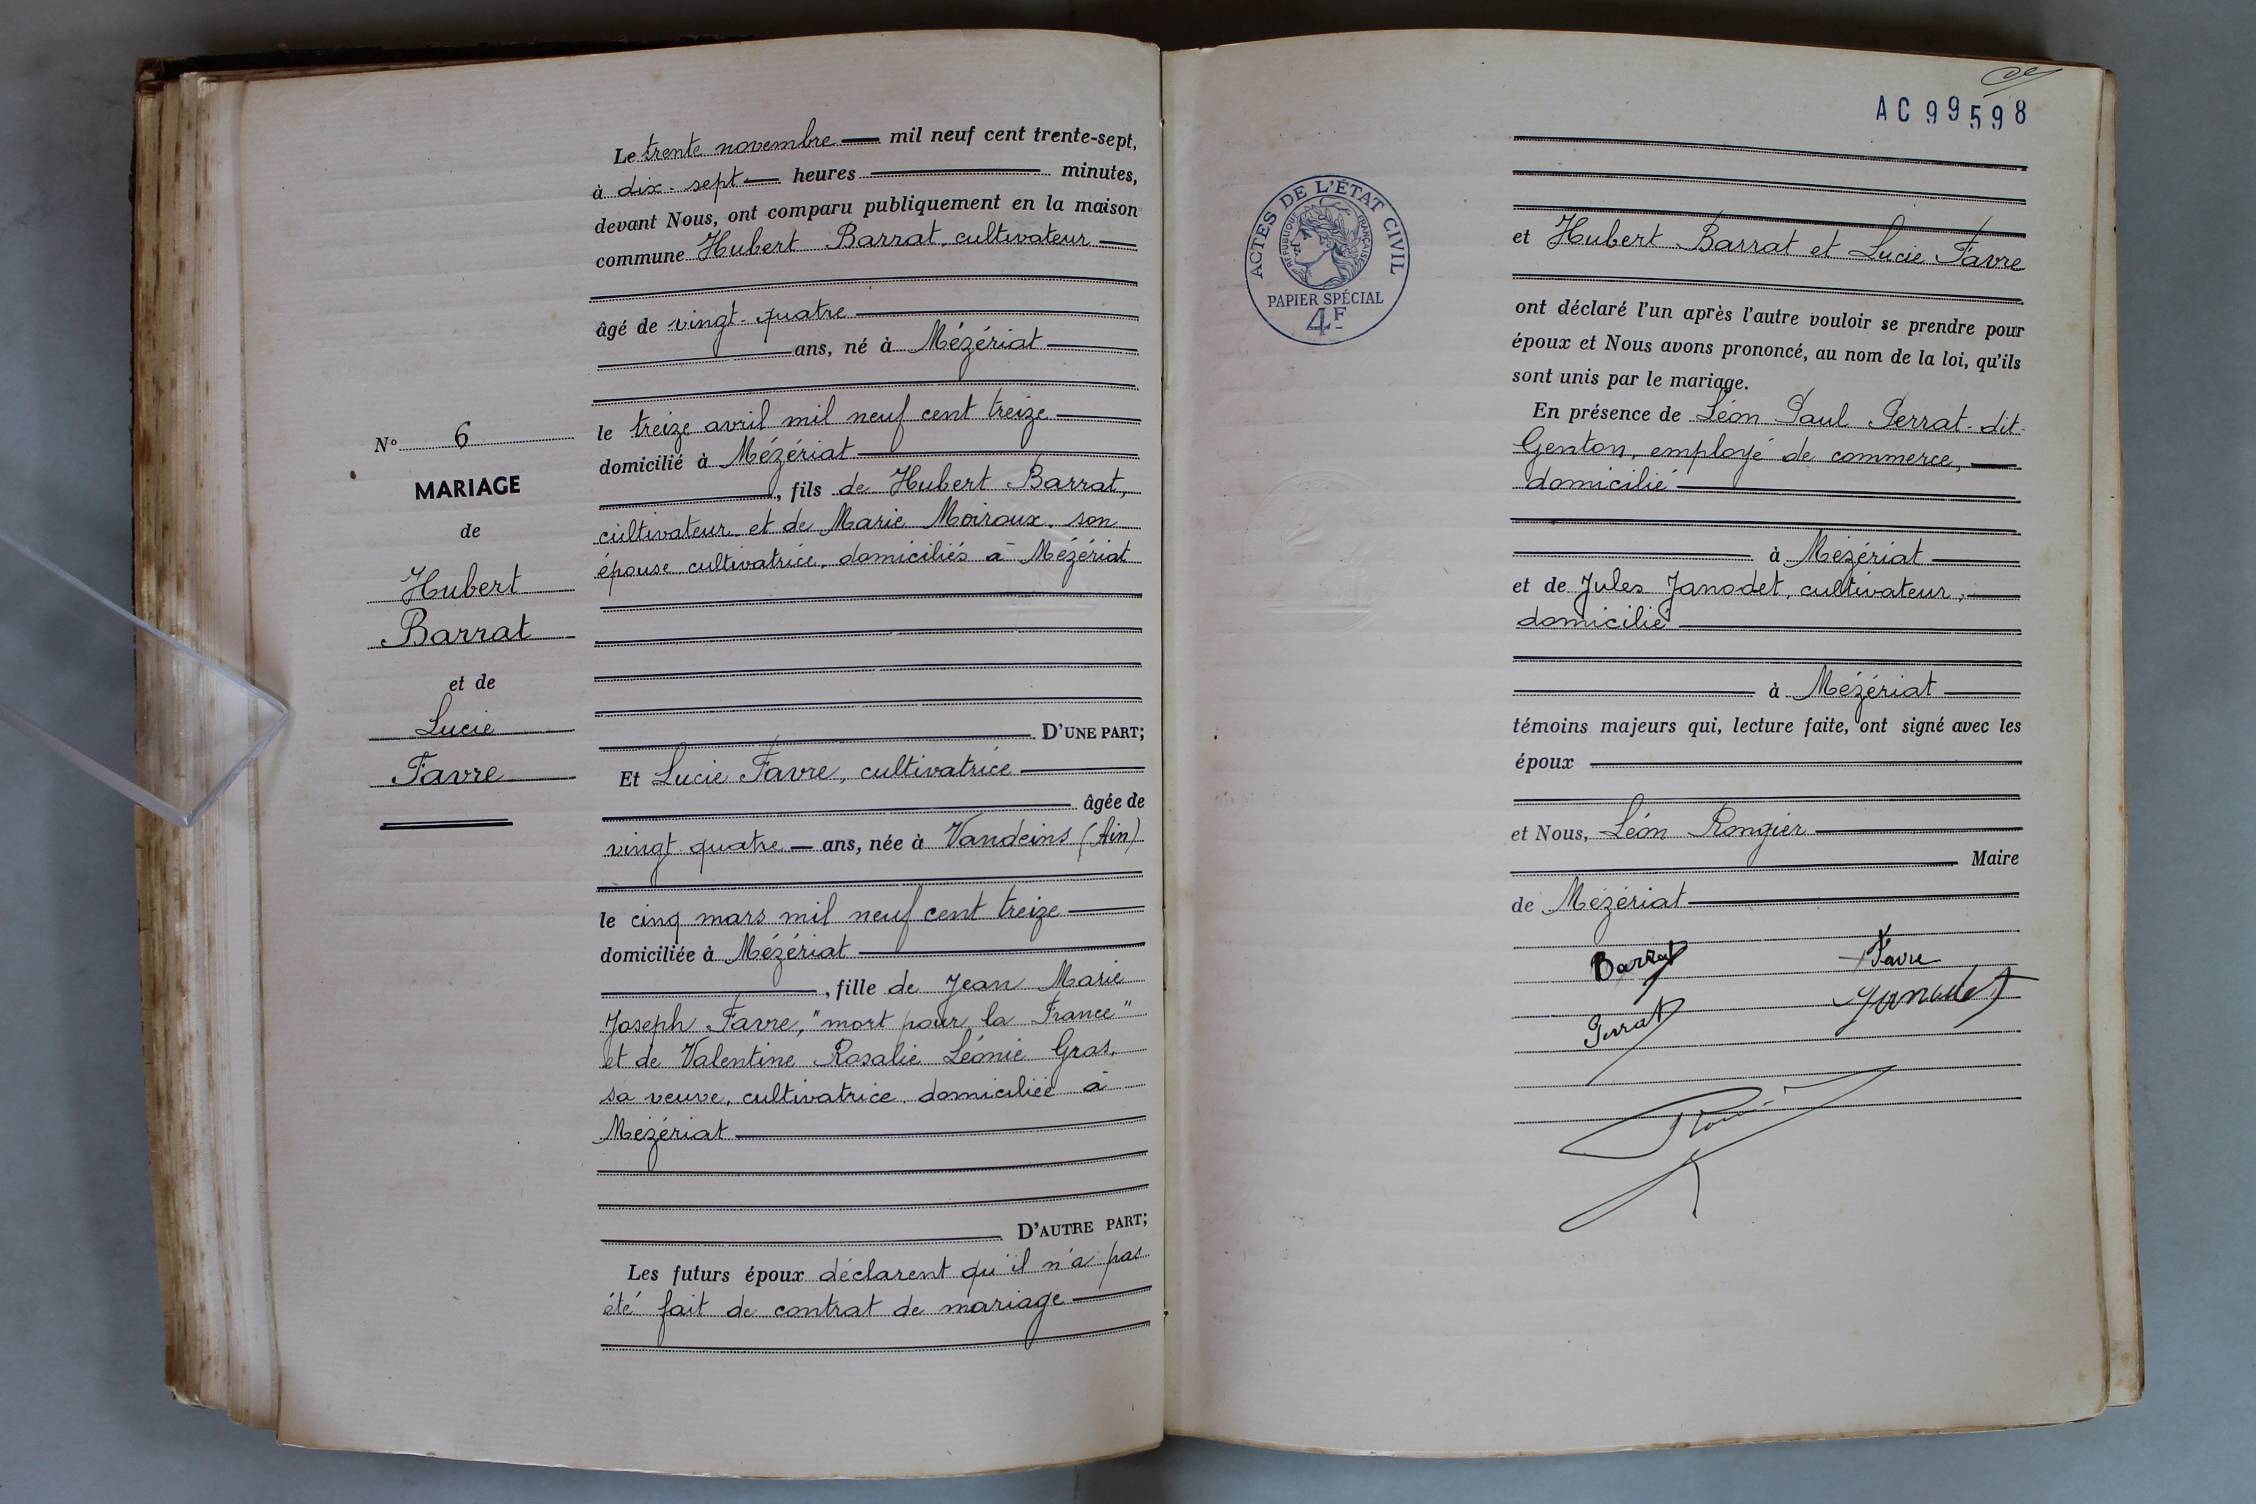 Le trente novembre mil neuf cent trente-sept,
à dix-sept heures minutes,
devant Nous, ont comparu publiquement en la maison
commune Hubert Barrat, cultivateur
âgé de vingt-quatre
ans, né à Mézériat
le treize avril mil neuf cent treize
domicilié à Mézériat
, fils de Hubert Barrat,
cultivateur et de Marie Moiroux, son
épouse, cultivatrice, domiciliés à Mézériat
D'UNE PART;
Et Lucie Favre, cultivatrice
âgée de
vingt quatre ans, née à Vandeins (Ain)
le cinq mars mil neuf cent treize
domiciliée à Mézériat
, fille de Jean Marie
Joseph Favre, "mort pour la France"
et de Valentine Rosalie Léonie Gras,
sa veuve, cultivatrice, domiciliée à
Mézériat
D'AUTRE PART;
Les futurs époux déclarent qu'il n'a pas
été fait de contrat de mariage
N° 6
MARIAGE
de
Hubert
Barrat
et de
Lucie
Favre
AC 99598
ACTES DE L'ÉTAT CIVIL
RÉPUBLIQUE FRANÇAISE
PAPIER SPÉCIAL
4F
et Hubert Barrat et Lucie Favre
ont déclaré l'un après l'autre vouloir se prendre pour
époux et Nous avons prononcé, au nom de la loi, qu'ils
sont unis par le mariage.
En présence de Léon Paul Perrat-dit-
Genton, employé de commerce,
domicilié
à Mézériat
et de Jules Janodet, cultivateur,
domicilié
à Mézériat
témoins majeurs qui, lecture faite, ont signé avec les
époux
et Nous, Léon Rongier
Maire
de Mézériat
Barrat Favre
Perrat Janodet